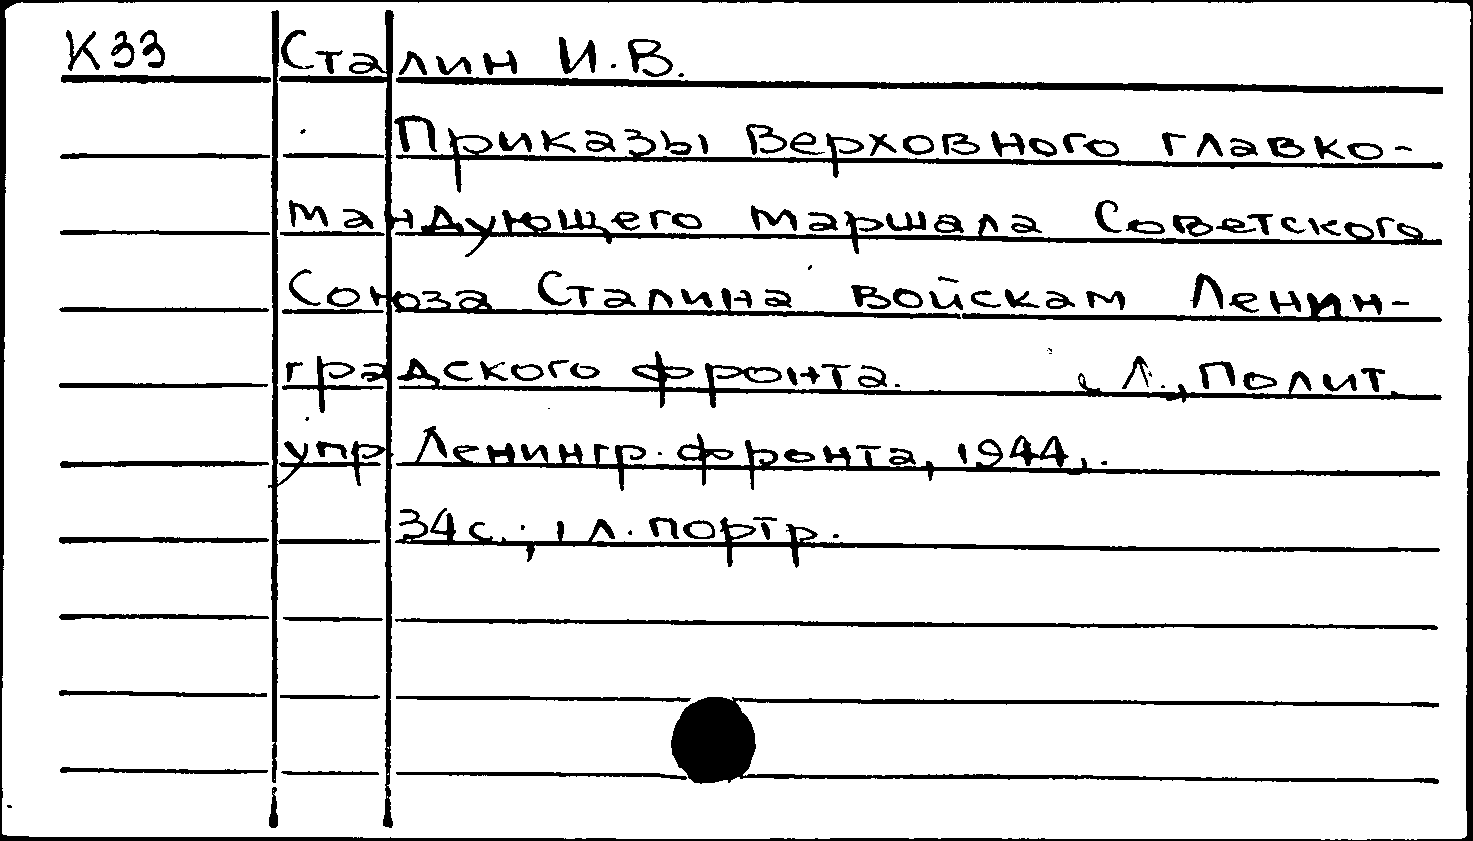 К33 Сталин И.В.
Приказы Верховного главко-
мандующего маршала Советского
Союза Сталина войскам Ленин-
градского фронта. Л., Полит.
упр. Ленингр. фронта, 1944.
34 с.; 1 л. портр.